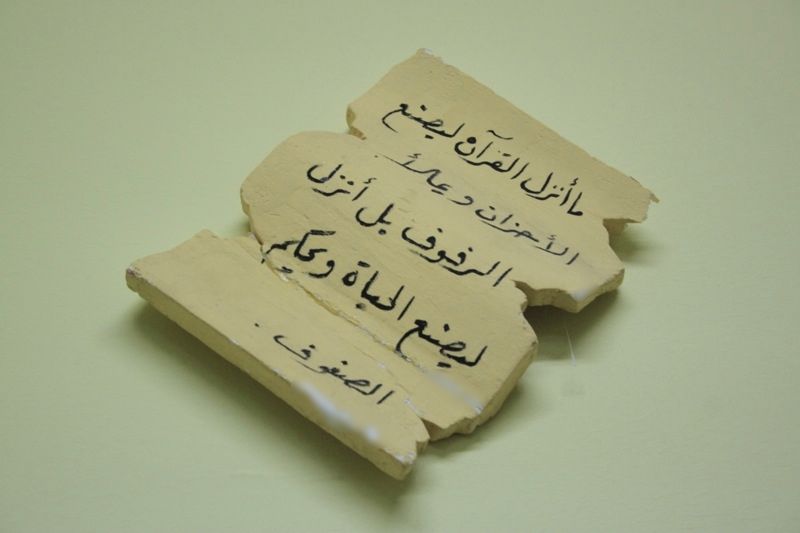 ما أنزل القرآن ليصنع
الأحزان ويملأ
الرفوف بل أنزل
ليصنع الحياة ويحكيم
الصفوف.